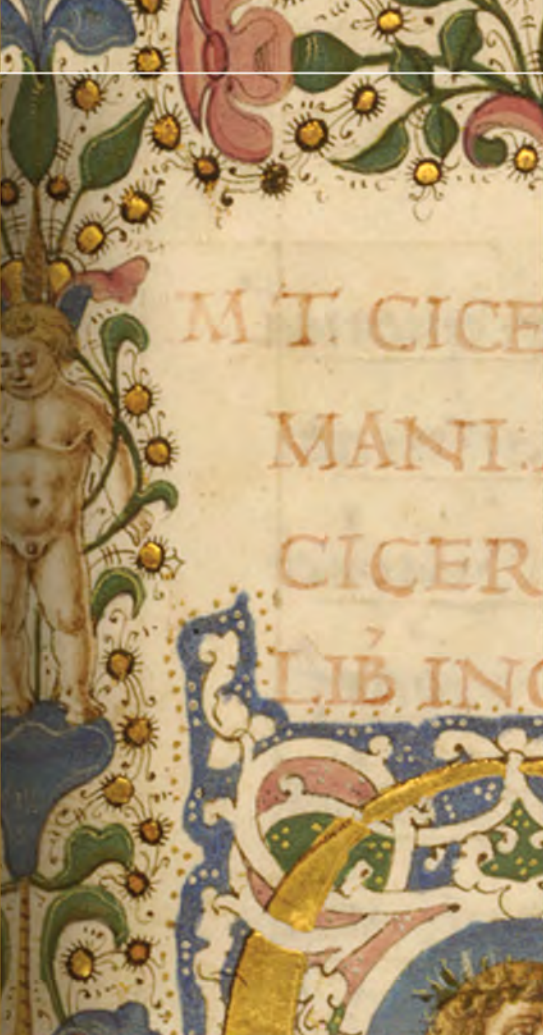 M T. CICE
MANI.
CICER
LIB̃ INC